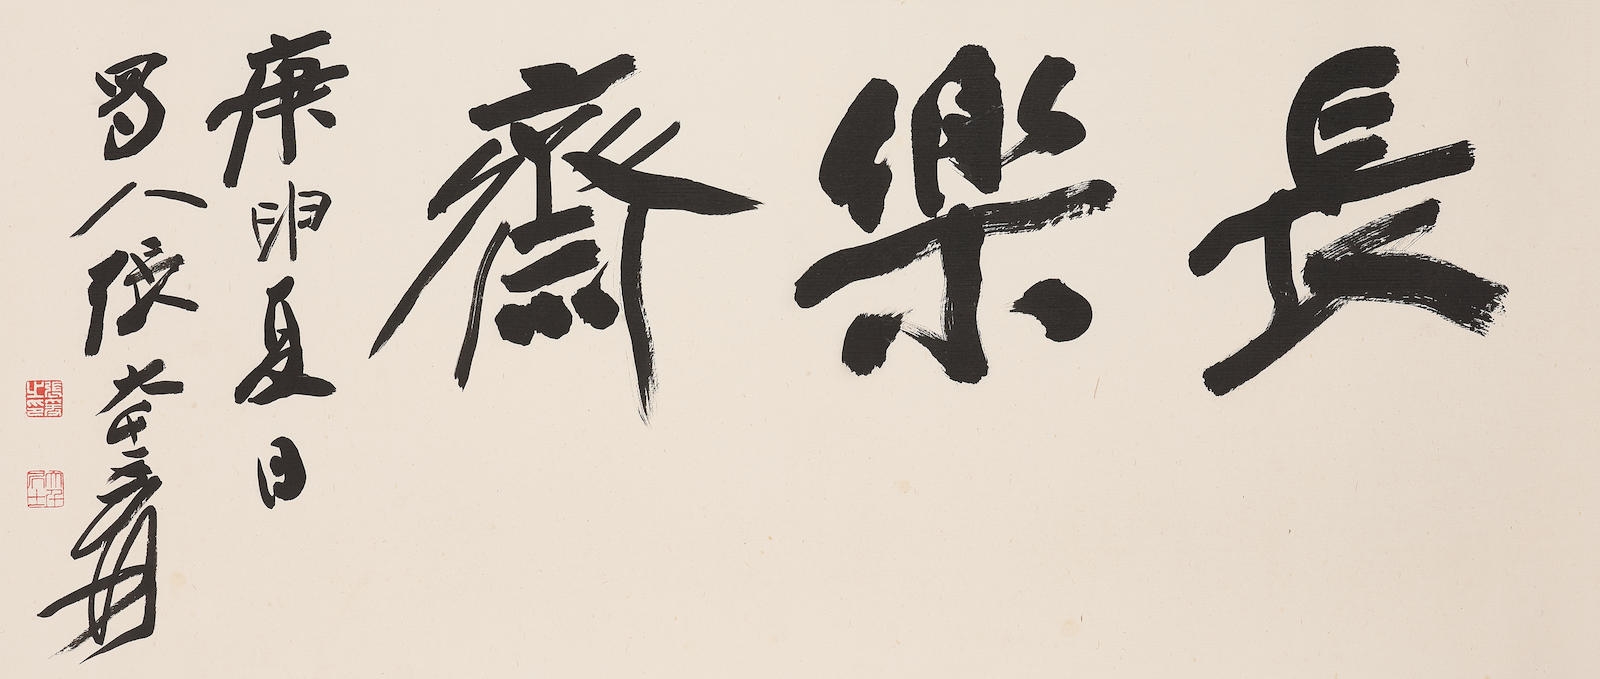 長樂齋
庚申夏日
蜀人張大千爰
張爰之印
大千居士